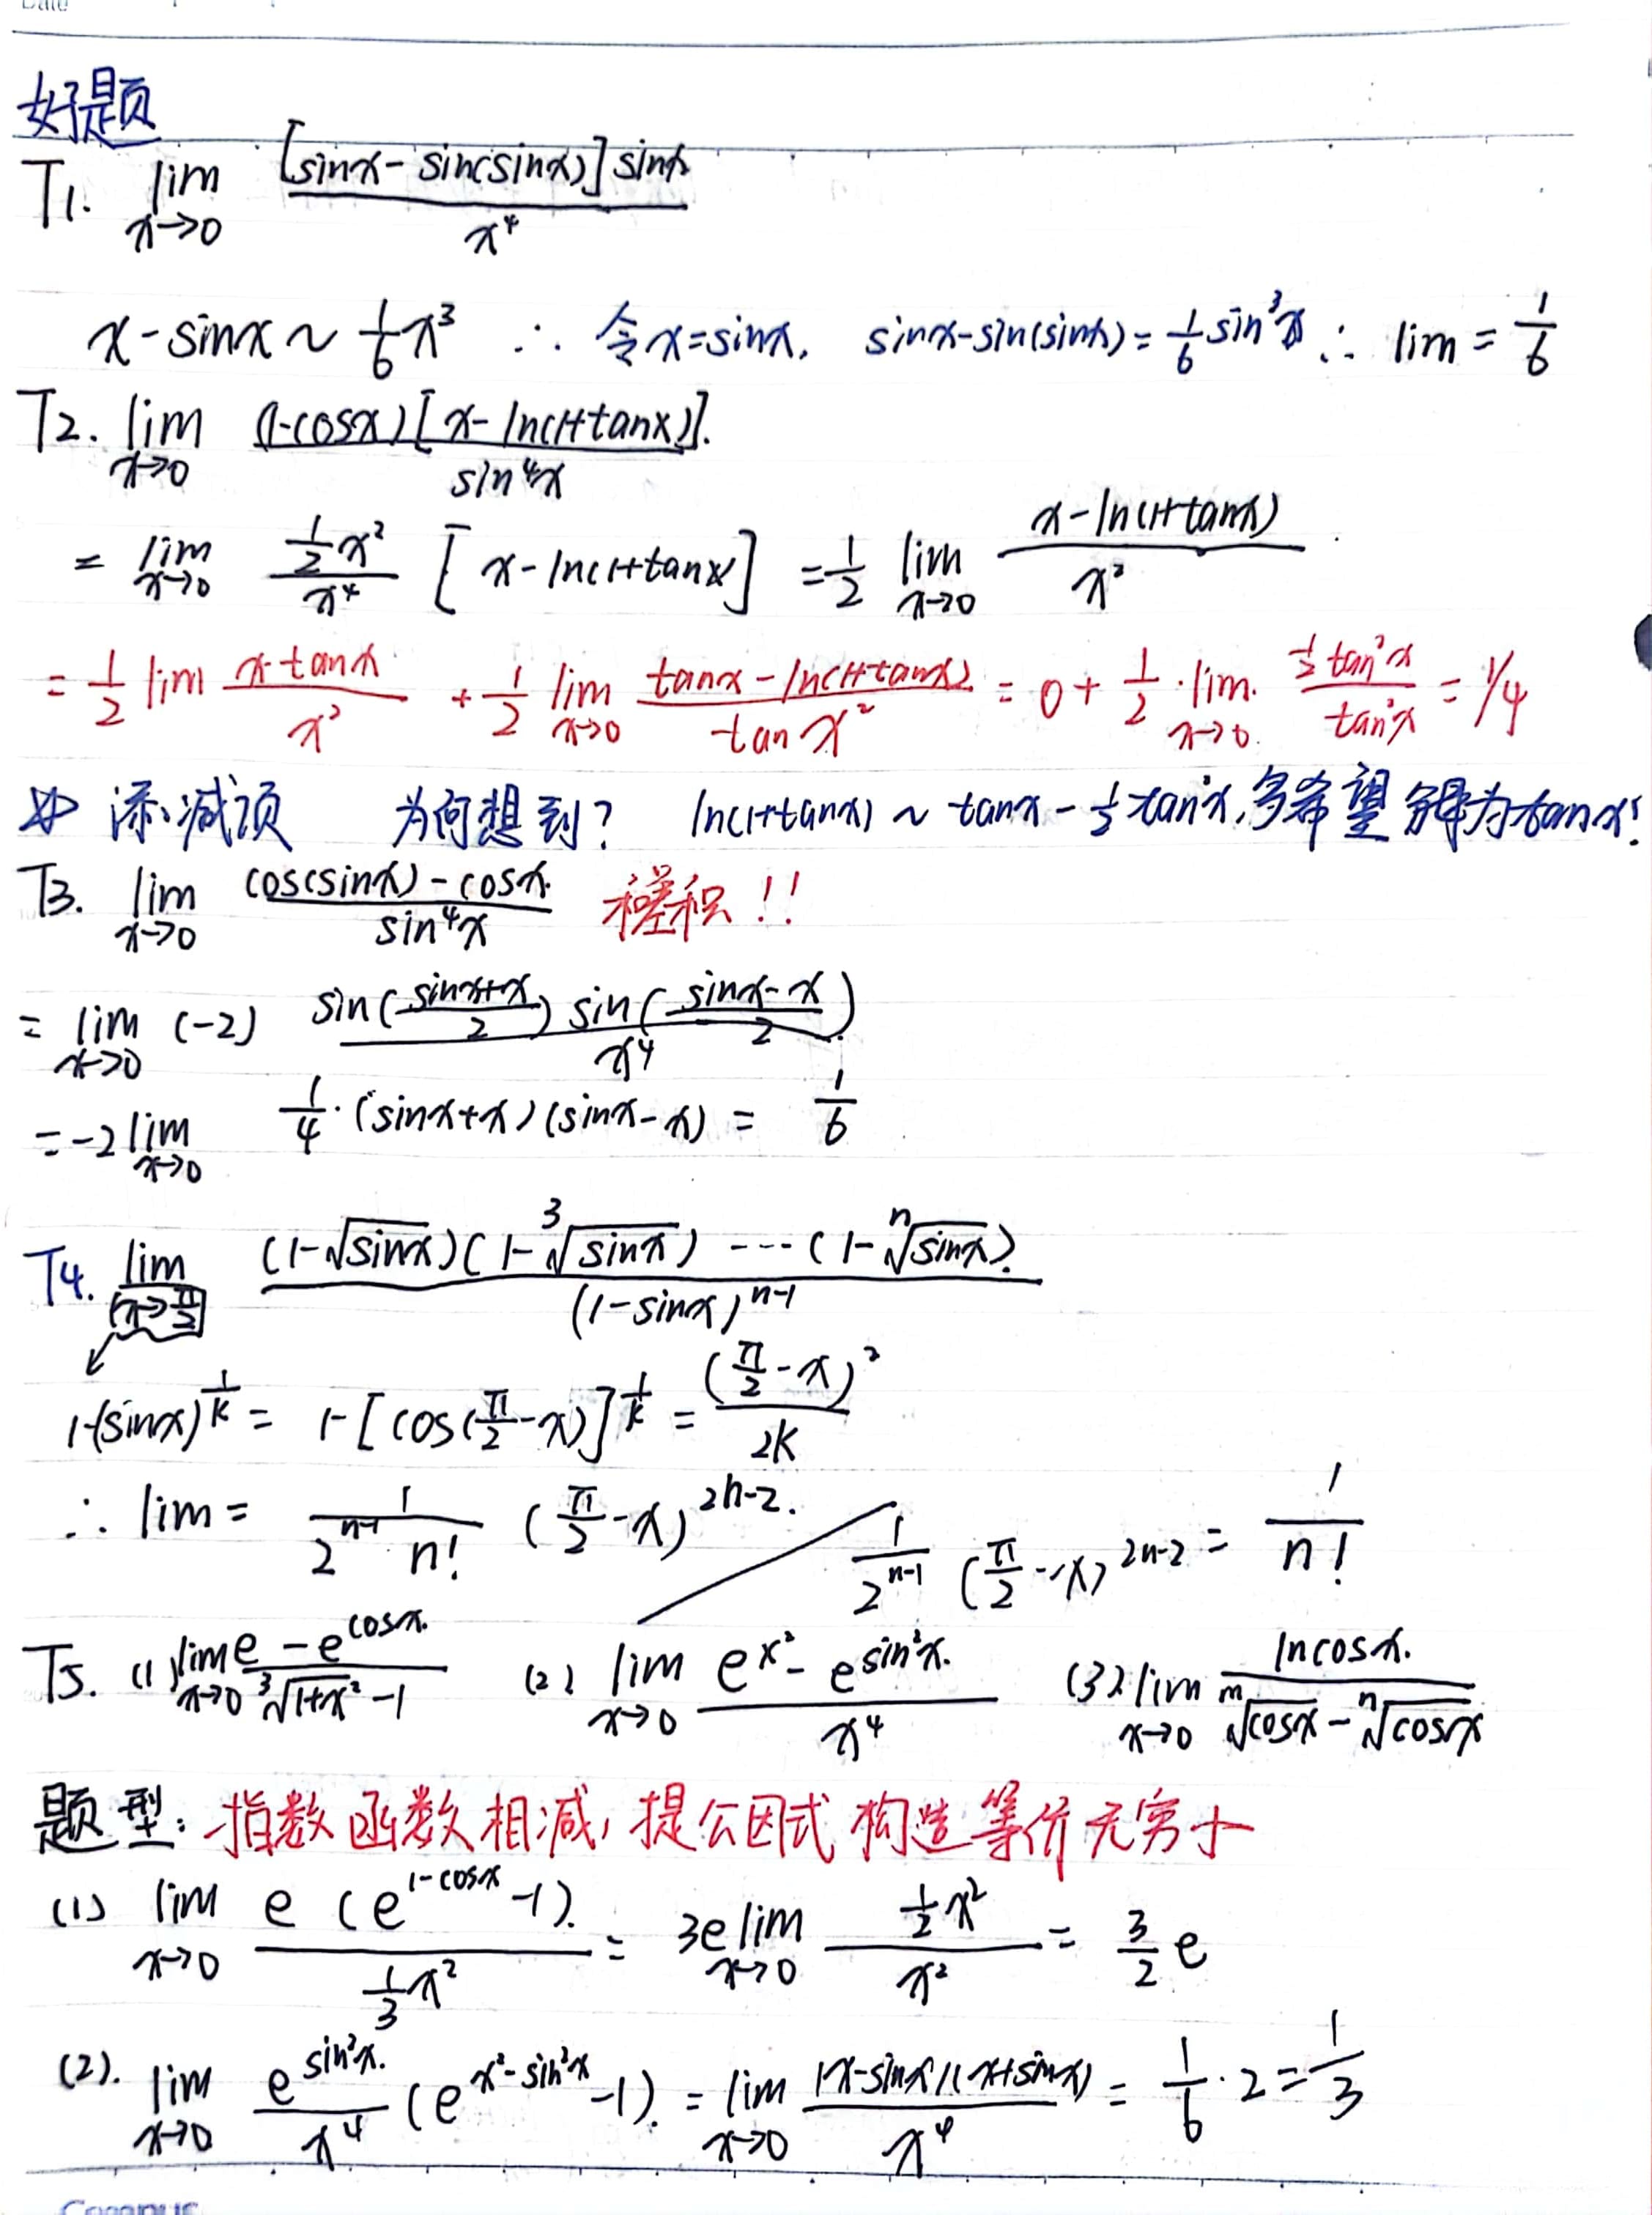 好题
T1. lim x→0 [sinx - sin(sinx)] sinx / x⁴
x - sinx ~ 1/6 x³ ∴ 令x=sinx, sinx-sin(sinx) = 1/6 sin³x ∴ lim = 1/6
T2. lim x→0 (1-cosx)[x - ln(1+tanx)]. / sin⁴x
= lim x→0 ½x² / x⁴ [x - ln(1+tanx)] = ½ lim x→0 x - ln(1+tanx) / x²
= ½ lim x-tanx / x² + ½ lim x→0 tanx - ln(1+tanx) / tan x² = 0 + ½ · lim x→0 ½tan²x / tan²x = 1/4
添减项 为何想到? ln(1+tanx) ~ tanx - ½tan²x, 多希望 分母为tanx!
T3. lim x→0 cos(sinx) - cosx / sin⁴x 和差积!!
= lim x→0 (-2) sin(sinx+x / 2) sin(sinx-x / 2) / x⁴
= -2 lim x→0 1/4 · (sinx+x)(sinx-x) = 1/6
T4. lim x→π/2 (1-√sinx)(1-³√sinx) --- (1-ⁿ√sinx). / (1-sinx)ⁿ⁻¹
1-(sinx)^1/k = 1-[cos(π/2-x)]^1/k = (π/2-x)² / 2k
∴ lim = 1 / 2ⁿ⁻¹ n! (π/2-x)²ⁿ⁻². / 1/2ⁿ⁻¹ (π/2-x)²ⁿ⁻² = 1/n!
T5. (1) lim x→0 e - e^cosx / ³√1+x² - 1 (2) lim x→0 e^x² - e^sin²x / x⁴ (3) lim x→0 lncosx. / ᵐ√cosx - ⁿ√cosx
题型: 指数函数相减, 提公因式 构造等价无穷小
(1) lim x→0 e (e^1-cosx - 1). / 1/3 x² = 3e lim x→0 ½x² / x² = 3/2 e
(2). lim x→0 e^sin²x / x⁴ (e^x²-sin²x - 1). = lim x→0 (x-sinx)(x+sinx) / x⁴ = 1/6 · 2 = 1/3